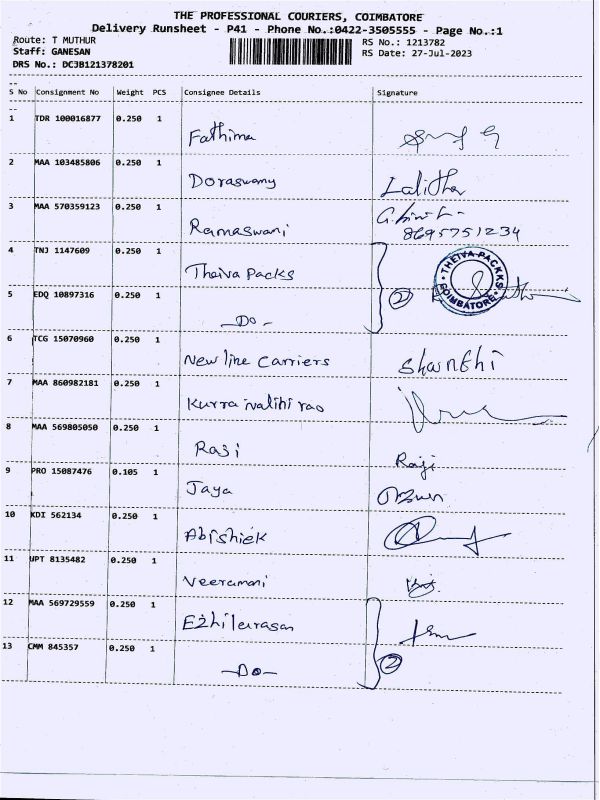 THE PROFESSIONAL COURIERS, COIMBATORE
Delivery Runsheet - P41 - Phone No.:0422-3505555 - Page No.:1
Route: T MUTHUR
Staff: GANESAN
DRS No.: DCJB121378201
RS No.: 1213782
RS Date: 27-Jul-2023
S No Consignment No Weight PCS Consignee Details Signature
1 TDR 100016877 0.250 1 Fathima
2 MAA 103485806 0.250 1 Doraswamy Lalitha
3 MAA 570359123 0.250 1 Ramaswani
8695751234
4 TNJ 1147609 0.250 1 Theiva Packs
THEIVA PACKKS COIMBATORE
5 EDQ 10897316 0.250 1 —Do— 2
6 TCG 15070960 0.250 1 New line Carriers Shanthi
7 MAA 860982181 0.250 1 Kurra rao
8 MAA 569805050 0.250 1 Raji Raji
9 PRO 15087476 0.105 1 Jaya
10 KDI 562134 0.250 1 Abishiek
11 UPT 8135482 0.250 1 Veeramani
12 MAA 569729559 0.250 1 Ezhilarasan
13 CMM 845357 0.250 1 —Do— 2